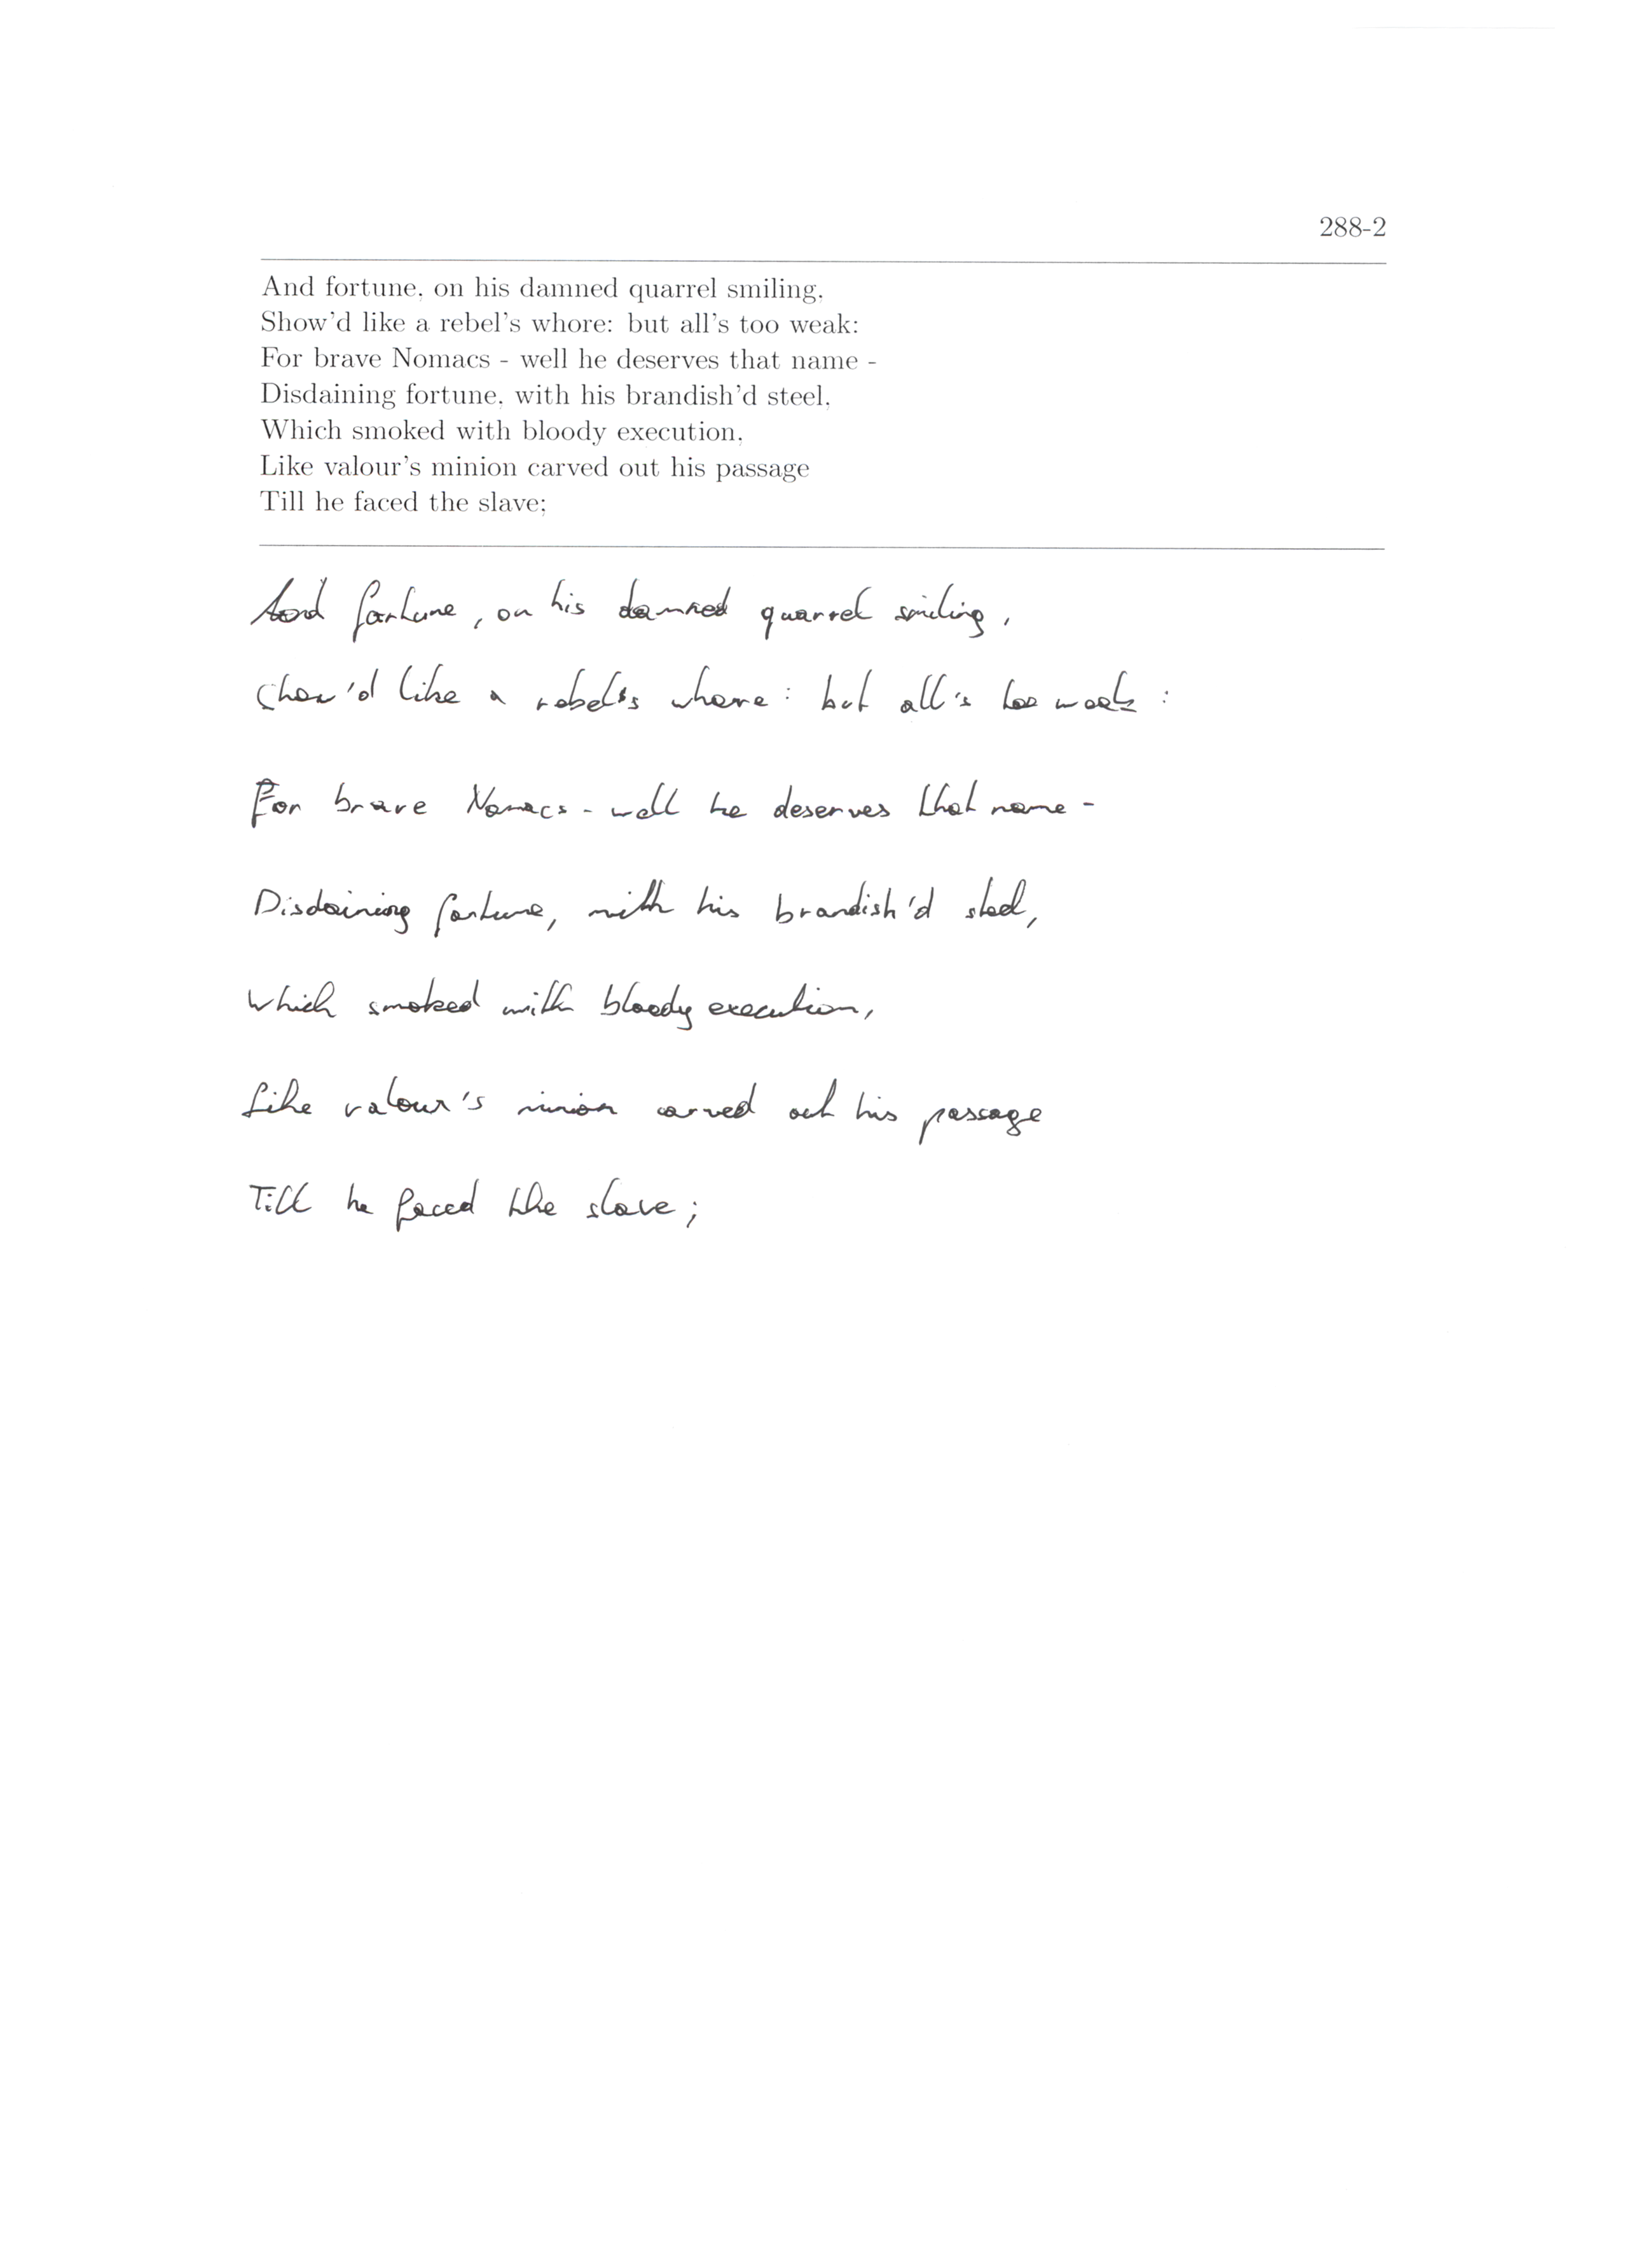 288-2
And fortune, on his damned quarrel smiling,
Show'd like a rebel's whore: but all's too weak:
For brave Nomacs - well he deserves that name -
Disdaining fortune, with his brandish'd steel,
Which smoked with bloody execution,
Like valour's minion carved out his passage
Till he faced the slave;
And fortune, on his damned quarrel smiling,
Show'd like a rebel's whore: but all's too weak:
For brave Nomacs - well he deserves that name -
Disdaining fortune, with his brandish'd steel,
Which smoked with bloody execution,
Like valour's minion carved out his passage
Till he faced the slave;